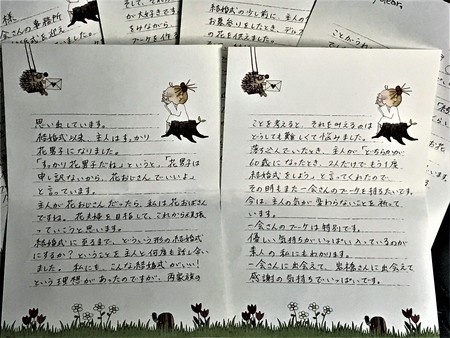 思い出しています。
結婚式以来、主人はすっかり
花男子になりました。
「すっかり花男子だね」というと、「花男子は
申し訳ないから、花おじさんでいいよ」
と言っています。
主人が花おじさんだったら、私は花おばさん
ですね。花夫婦を目指して、これから頑張
っていこうと思います。
結婚式に至るまで、どういう形の結婚式
にするか?ということを主人と何度も話し合い
ました。私にも、こんな結婚式がいい!
という理想があったのですが、両家族の
ことを考えると、それを叶えるのは
どうしても難しくて悩みました。
落ち込んでいたとき、主人が「どちらかが、
60歳になったとき、2人だけでもう1度
結婚式をしよう」と言ってくれたので、
その時もまた一会さんのブーケを持ちたいです。
今は、主人の気が変わらないことを祈って
います。
一会さんのブーケは特別です。
優しい気持ちがいっぱい入っているのが
素人の私にもわかります。
一会さんに出会えて、岩橋さんに出会えて
感謝の気持ちでいっぱいです。
会さんの事務所
が大好きです
結婚式の少し前に、主人の
お墓参りをしたとき、
の花を供えました。